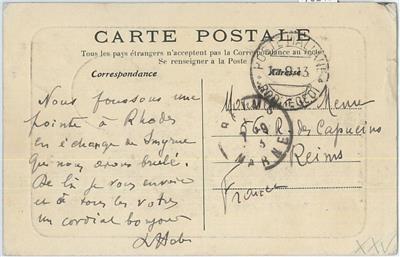 CARTE POSTALE
Tous les pays étrangers n'acceptent pas la Correspondance au recto
Se renseigner à la Poste
Correspondance
Adresse
POSTE ITALIANE
RODI (EGEO)
REIMS
MARNE
Nous poussons une
pointe à Rhodes
en échange de Smyrne
qui nous avons brulé.
De là je vous envoie
et à tous les votres
un cordial bonjour
Monsieur Menu
R. des Capucins
Reims
France
XXV